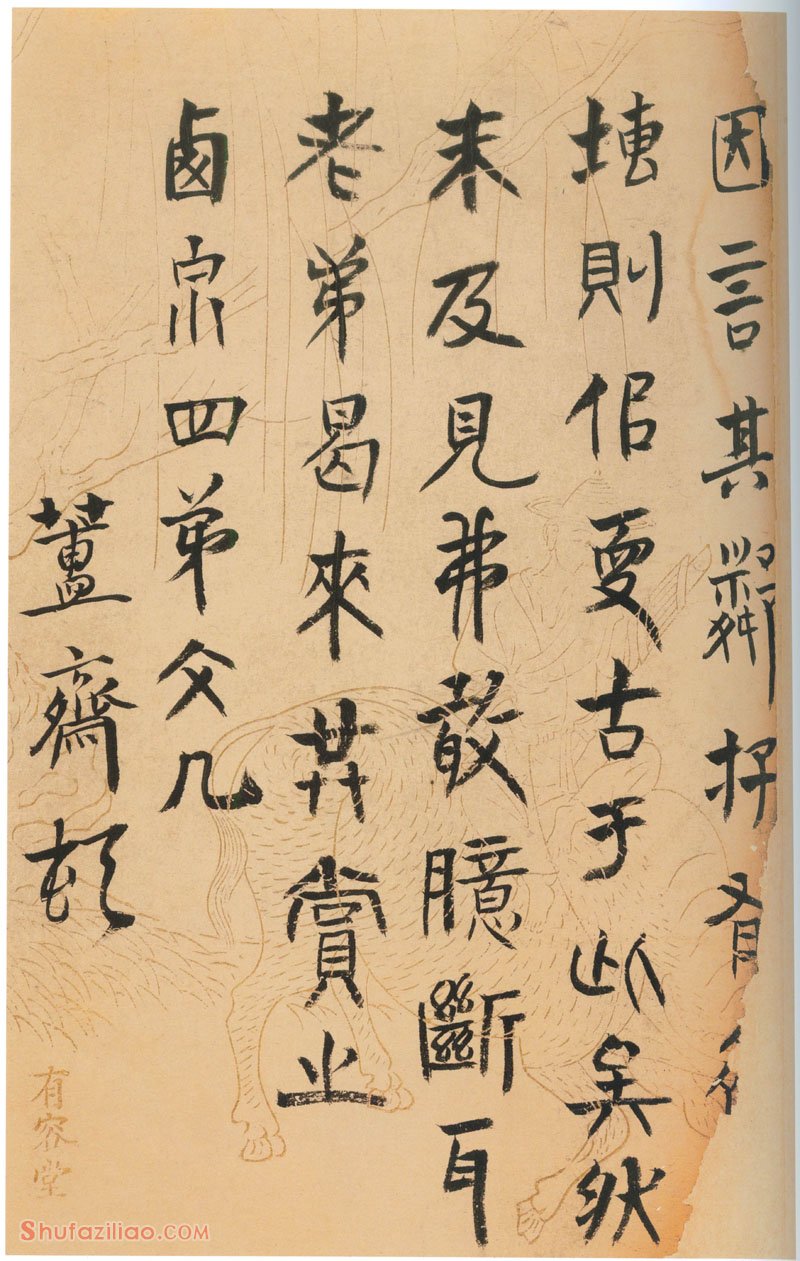 因言其鄰村有
塼則佀更古于此矣然
未及見弗敢臆斷耳
老弟曷來共賞之
鹵泉四弟文几
簠齋頓
有容堂
Shufaziliao.COM